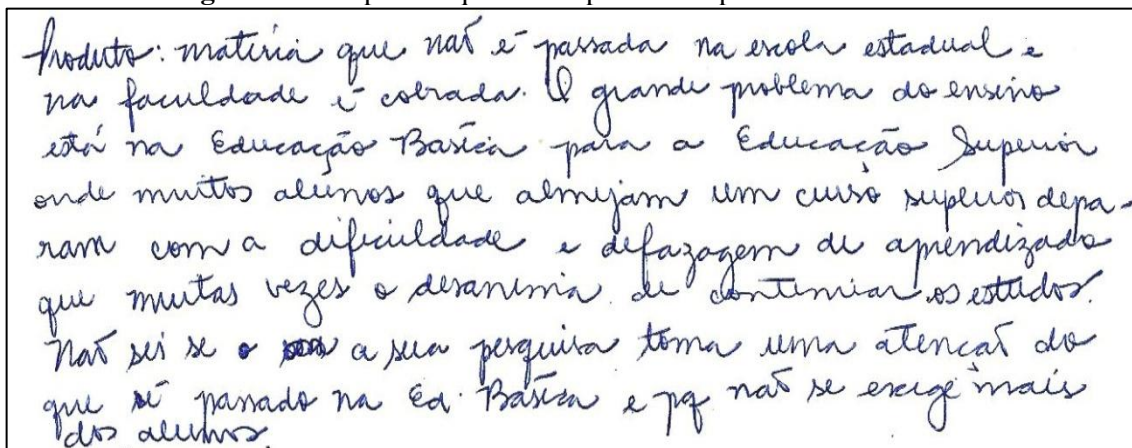 Produto: matéria que não é passada na escola estadual e
na faculdade é cobrada. O grande problema do ensino
está na Educação Basíca para a Educação Superior
onde muitos alunos que almejam um curso superior depa-
ram com a dificuldade e defazagem de aprendizado
que muitas vezes o desanima de continuar os estudos.
Não sei se o a sua pesquisa toma uma atencão do
que é passado na Ed. Basíca e pq não se exige mais
dos alunos.